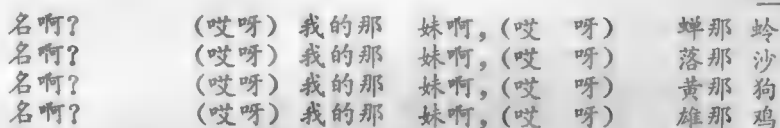 名啊？ (哎呀) 我的那 妹啊，(哎 呀) 蝉那 蛉
名啊？ (哎呀) 我的那 妹啊，(哎 呀) 落那 沙
名啊？ (哎呀) 我的那 妹啊，(哎 呀) 黄那 狗
名啊？ (哎呀) 我的那 妹啊，(哎 呀) 雄那 鸡